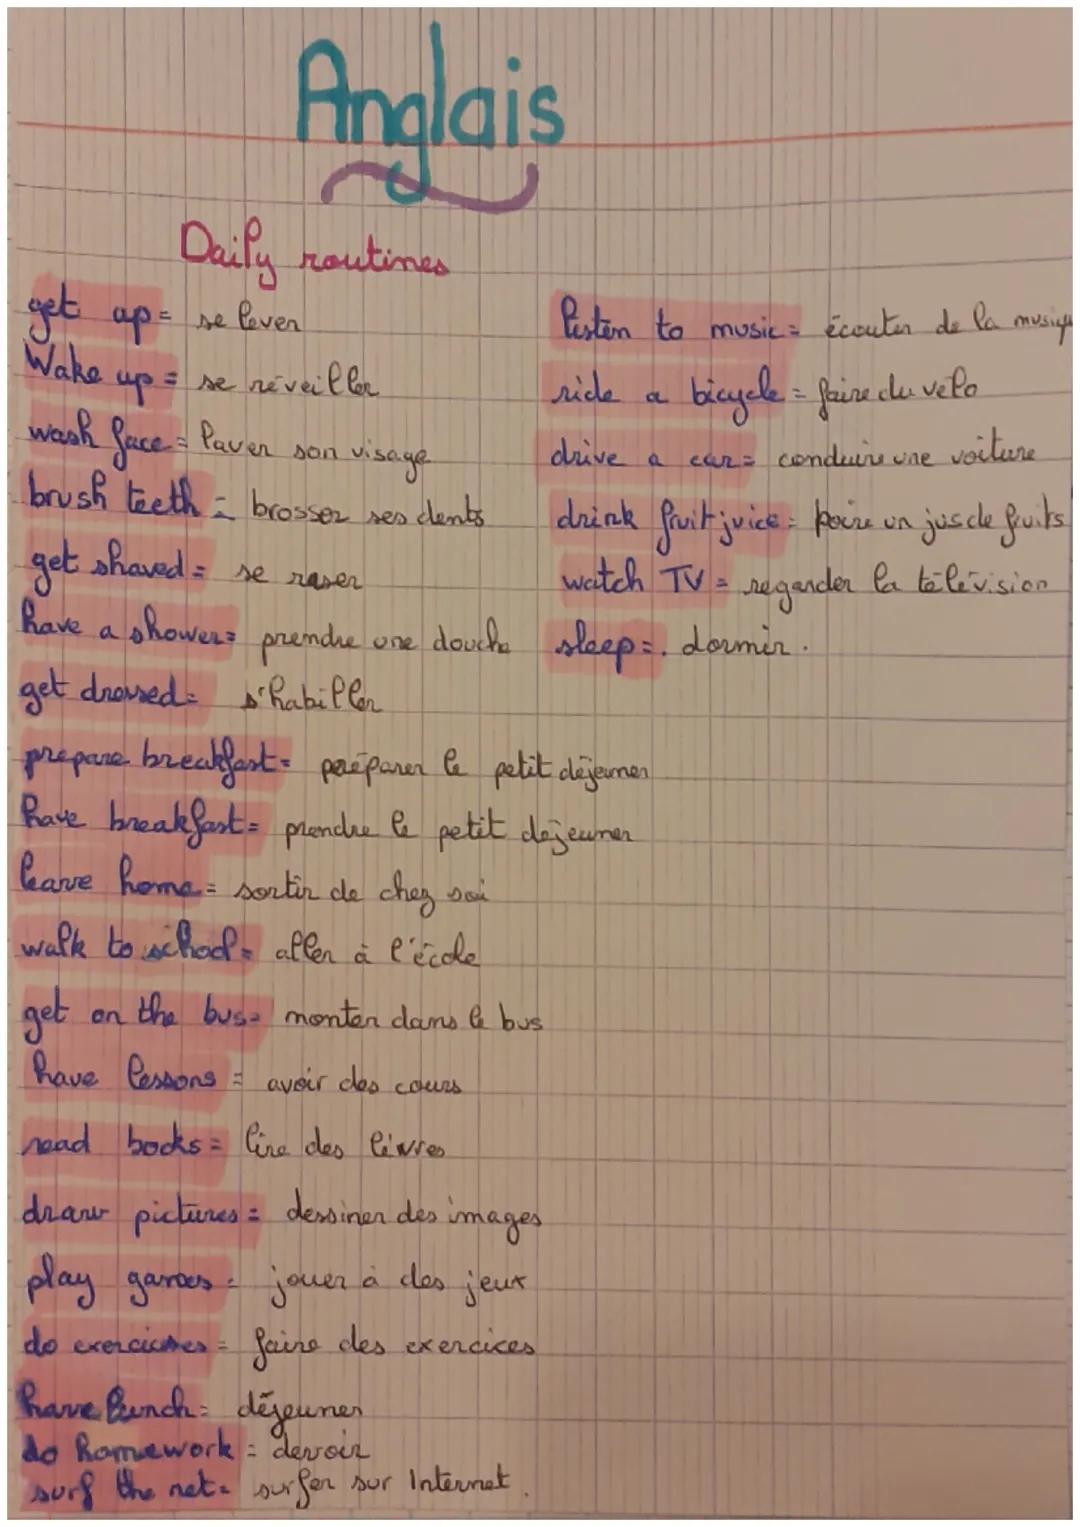 Anglais
Daily routines
get up = se lever
Wake up = se réveiller
wash face = laver son visage
brush teeth = brosser ses dents
get shaved = se raser
have a shower = prendre une douche
get dressed = s'habiller
prepare breakfast = préparer le petit déjeuner
have breakfast = prendre le petit déjeuner
leave home = sortir de chez soi
walk to school = aller à l'école
get on the bus = monter dans le bus
have lessons = avoir des cours
read books = lire des livres
draw pictures = dessiner des images
play games = jouer à des jeux
do exercises = faire des exercices
have lunch = déjeuner
do homework = devoir
surf the net = surfer sur Internet.
listen to music = écouter de la musique
ride a bicycle = faire du vélo
drive a car = conduire une voiture
drink fruit juice = boire un jus de fruits
watch TV = regarder la télévision
sleep = dormir.